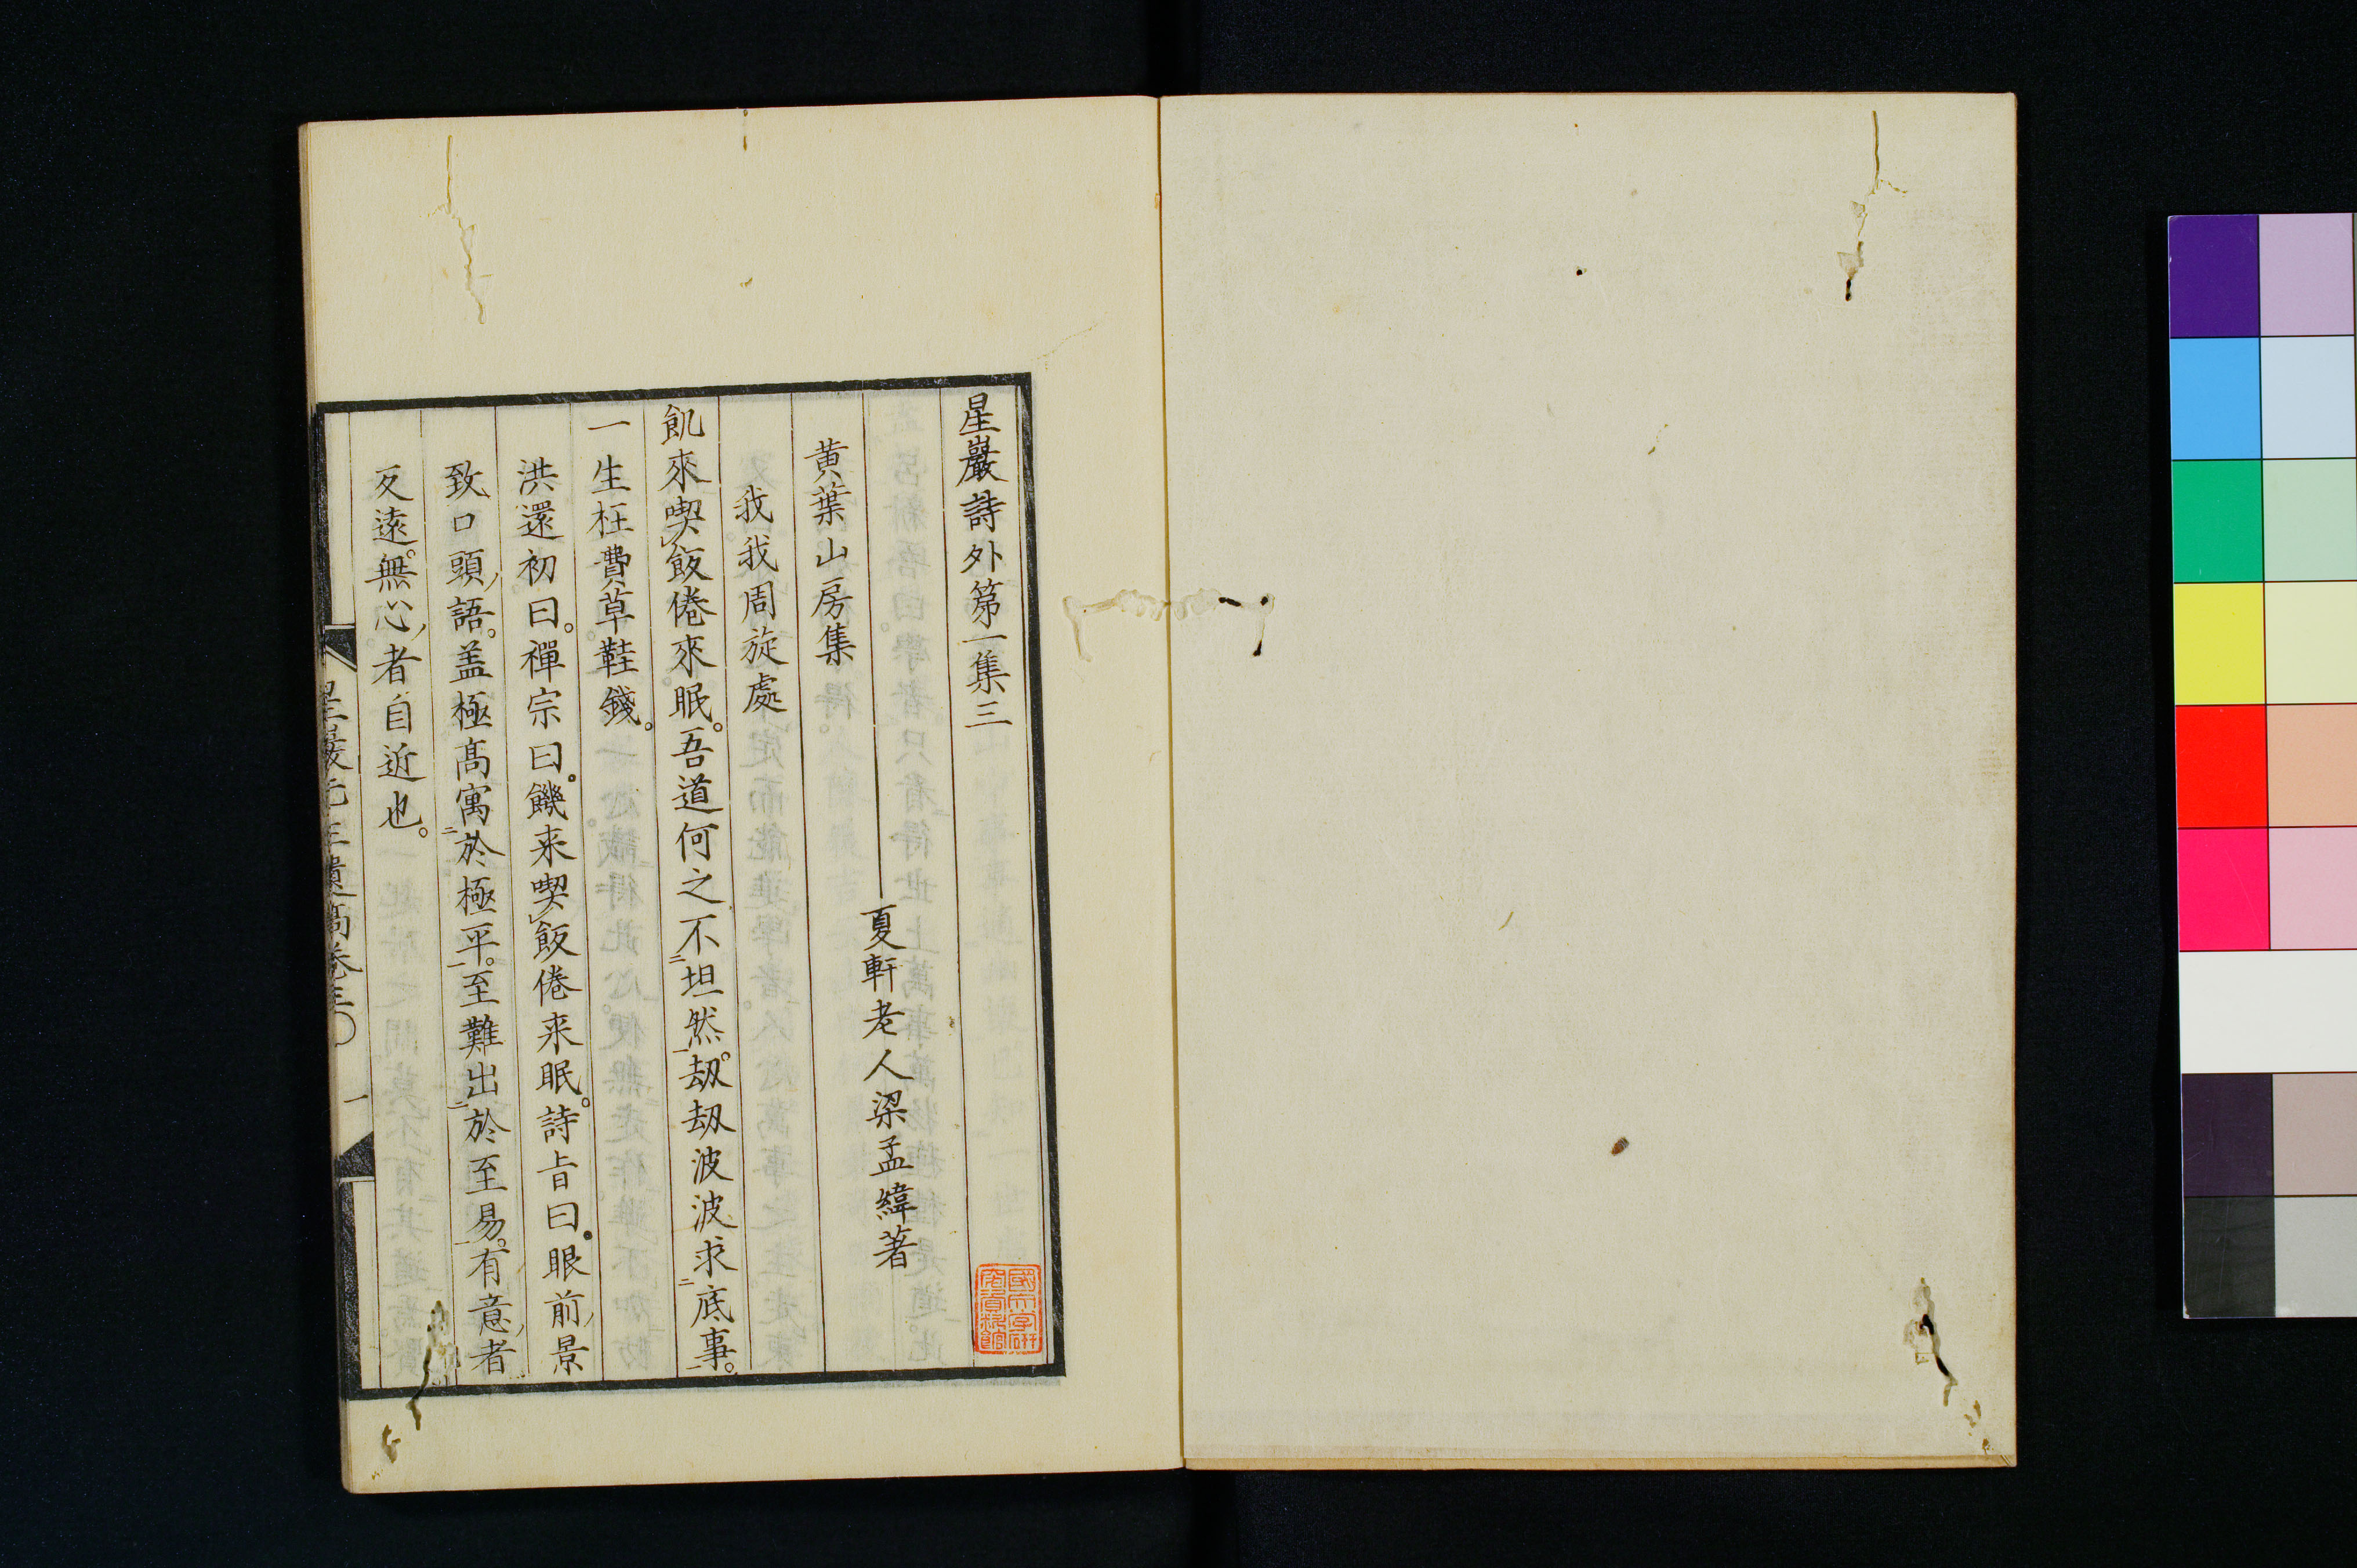 星巖詩外第一集三
夏軒老人梁孟緯著
黄葉山房集
我我周旋處
飢來喫飯倦來眠。吾道何之不坦然。刼刼波波求底事。
一生枉費草鞋錢。
洪還初曰。禪宗曰。饑来喫飯倦来眠。詩旨曰。眼前景
致口頭語。盖極高寓於極平。至難出於至易。有意者
反遠。無心者自近也。
一